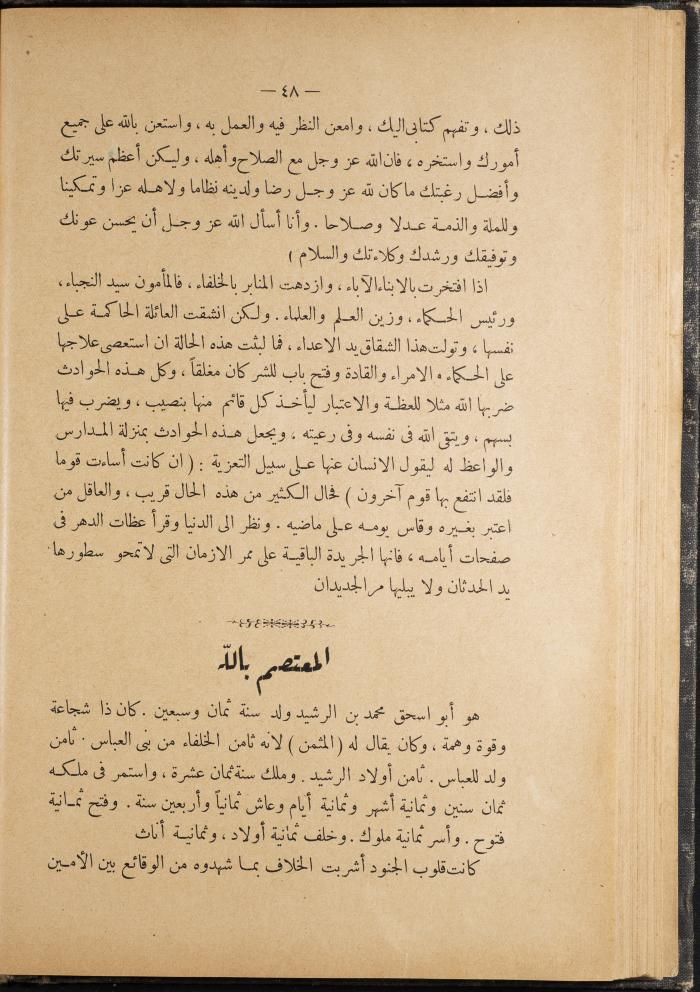 — ٤٨ —
ذلك ، وتفهم كتابى اليك ، وامعن النظر فيه والعمل به ، واستعن بالله على جميع
أمورك واستخره ، فان الله عز وجل مع الصلاح وأهله ، وليكن أعظم سيرتك
وأفضل رغبتك ما كان لله عز وجل رضا ولدينه نظاما ولاهله عزا وتمكينا
وللملة والذمة عدلا وصلاحا . وأنا أسأل الله عز وجل أن يحسن عونك
وتوفيقك ورشدك وكلاءتك والسلام )
اذا افتخرت بالابناء الآباء ، وازدهت المنابر بالخلفاء ، فالمأمون سيد النجباء ،
ورئيس الحكماء ، وزين العلم والعلماء . ولكن انشقت العائلة الحاكمة على
نفسها ، وتولت هذا الشقاق يد الاعداء ، فما لبثت هذه الحالة ان استعصى علاجها
على الحكماء . الامراء والقادة وفتح باب للشر كان مغلقاً ، وكل هذه الحوادث
ضربها الله مثلا للعظة والاعتبار ليأخذ كل قائم منها بنصيب ، ويضرب فيها
بسهم ، ويتقى الله فى نفسه وفى رعيته ، ويجعل هذه الحوادث بمنزلة المدارس
والواعظ له ليقول الانسان عنها على سبيل التعزية : ( ان كانت أساءت قوما
فلقد انتفع بها قوم آخرون ) فحال الكثير من هذه الحال قريب ، والعاقل من
اعتبر بغيره وقاس يومه على ماضيه . ونظر الى الدنيا وقرأ عظات الدهر فى
صفحات أيامه ، فانها الجريدة الباقية على ممر الازمان التى لا تمحو سطورها
يد الحدثان ولا يبليها مر الجديدان
المعتصم بالله
هو أبو اسحق محمد بن الرشيد ولد سنة ثمان وسبعين . كان ذا شجاعة
وقوة وهمة ، وكان يقال له ( المثمن ) لانه ثامن الخلفاء من بنى العباس . ثامن
ولد للعباس . ثامن أولاد الرشيد . وملك سنة ثمان عشرة ، واستمر فى ملكه
ثمان سنين وثمانية أشهر وثمانية أيام وعاش ثمانياً وأربعين سنة . وفتح ثمانية
فتوح . وأسر ثمانية ملوك . وخلف ثمانية أولاد ، وثمانية أناث
كانت قلوب الجنود أشربت الخلاف بما شهدوه من الوقائع بين الأمين